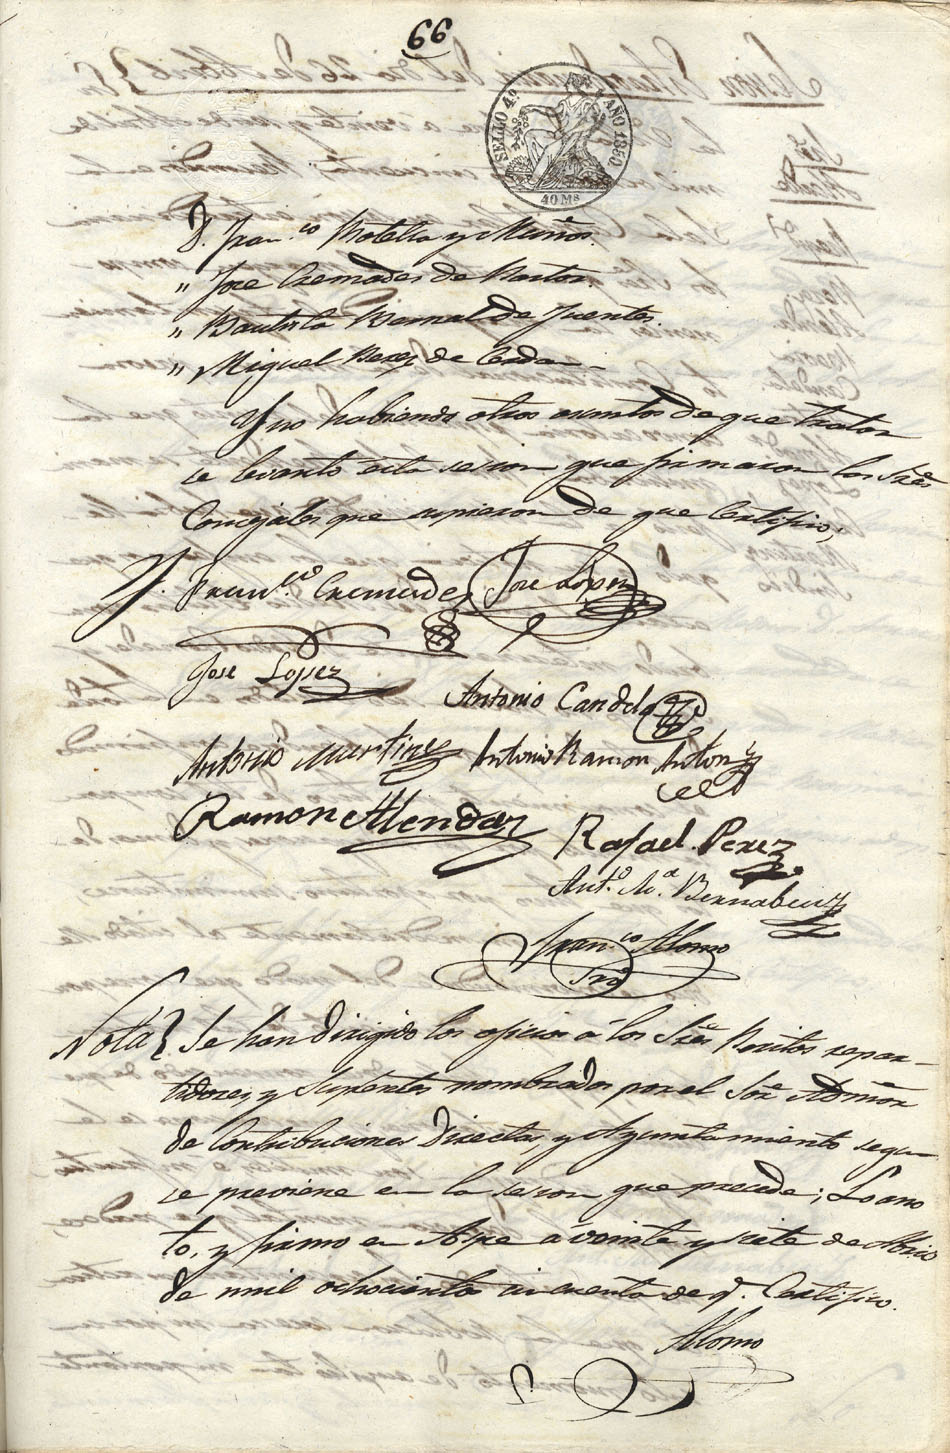 66
SELLO 4º AÑO 1850.
40 Ms
D. Franco Motella y Muñoz.
" Jose Cremades de Martin
" Bautista Bernal de Fuentes.
" Miguel Perez de Cerdan
Y no habiendo otros asuntos de que tratar
se levanto esta sesion que firmaron los Sres
Concejales que supieron de que Certifico,
Franco Cremades Jose Lopez
Jose Lopez
Antonio Candela
Antonio Martinez Antonio Ramon Anton
Ramon Alendaz
Rafael Perez
Anto Ma Bernabeu
Franco Alonso
Srio
Nota Se han dirigido los oficios á los Sres Peritos repar-
tidores, y suplentes nombrados por el Sor Admor
de Contribuciones Directas, y Ayuntamiento segun
se previene en la sesion que precede; Lo ano
to, y firmo en Aspe á veinte y siete de Abril
de mil ochocientos cincuenta de q. Certifico.
Alonso